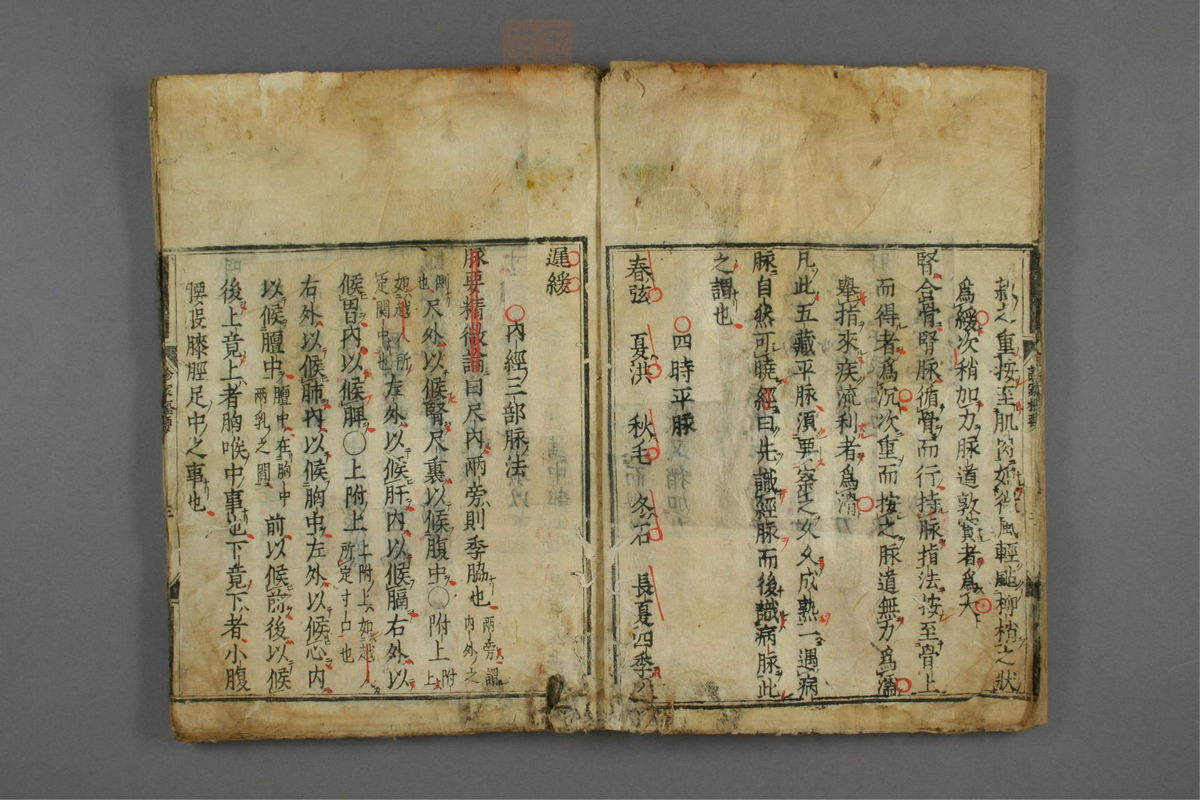 菽之重按至肌肉如微風輕颭柳梢之狀
爲緩次稍加力脉道敦實者爲大
腎合骨腎脉循骨而行持脉指法按至骨上
而得者爲沉次重而按之脉道無力爲濡
舉指來疾流利者爲滑
凡此五藏平脉須要察之久久成熟一遇病
脉自然可曉經曰先識經脉而後識病脉此
之謂也
〇四時平脉
春弦 夏洪 秋毛 冬石 長夏四季
遲緩
〇內經三部脉法
脉要精微論曰尺內兩旁則季脇也兩旁謂內外之
側也尺外以候腎尺裏以候腹中〇附上附上
如越人所定關中也左外以候肝內以候膈右外以
候胃內以候脾〇上附上上附上如越人所定寸口也
右外以候肺內以候胸中左外以候心內
以候膻中膻中在胸中兩乳之間前以候前後以候
後上竟上者胸喉中事也下竟下者小腹
腰股膝脛足中之事也